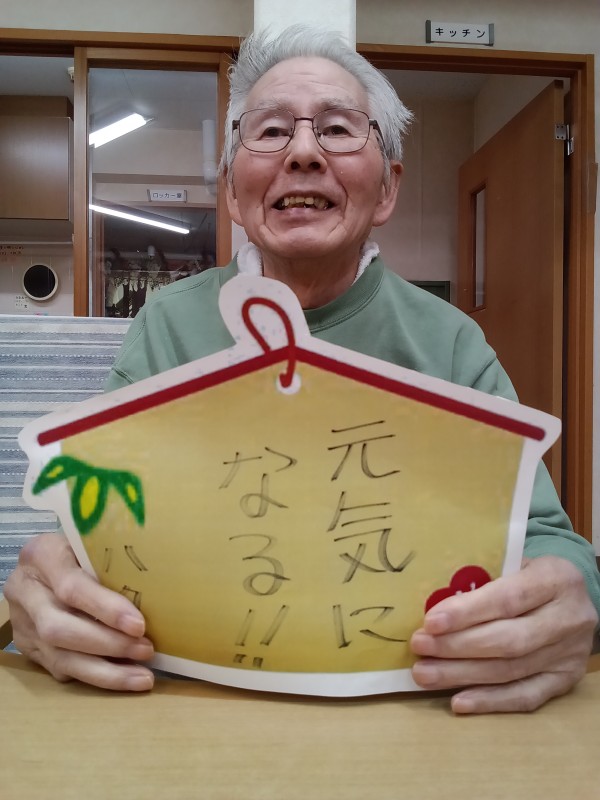 キッチン
ロッカー室
元気に
なる!!
ハタ